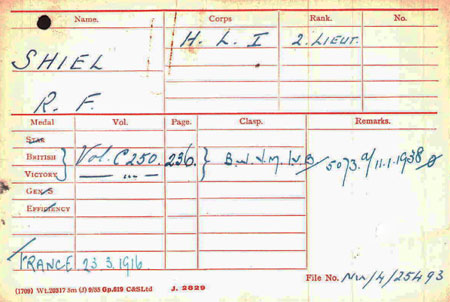 Name. Corps Rank. No.
SHIEL H. L. I 2. LIEUT.
R. F.
Medal Vol. Page. Clasp. Remarks.
STAR
BRITISH Vol. C 250. 236. B.W.V.M. I.V.B / 5073.a/11.1.1938
VICTORY — „ —
GEN S
EFFICIENCY
FRANCE 23 3.1916
File No. NW/4/25493
(1709) Wt.20317 5m (J) 9/33 Gp.619 C&SLtd J. 2029